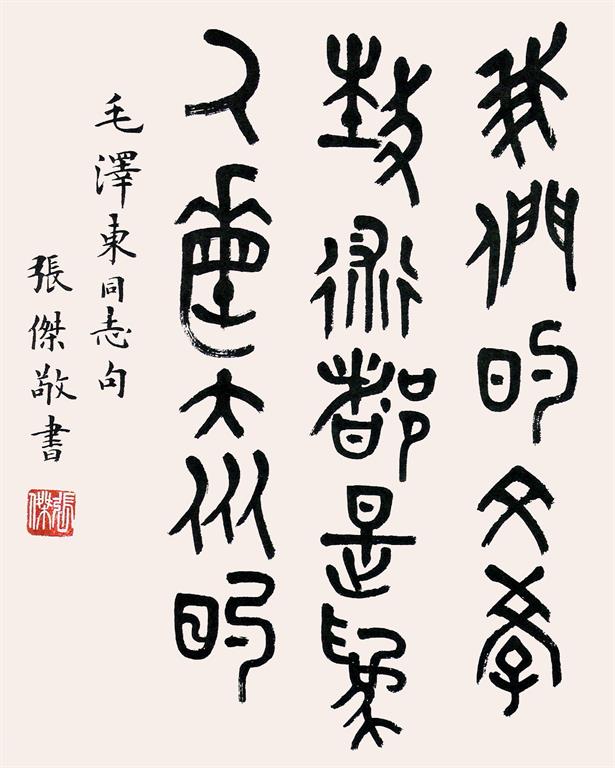 我們的文學
藝術都是為
人民大眾的
毛澤東同志句
張傑敬書
張傑